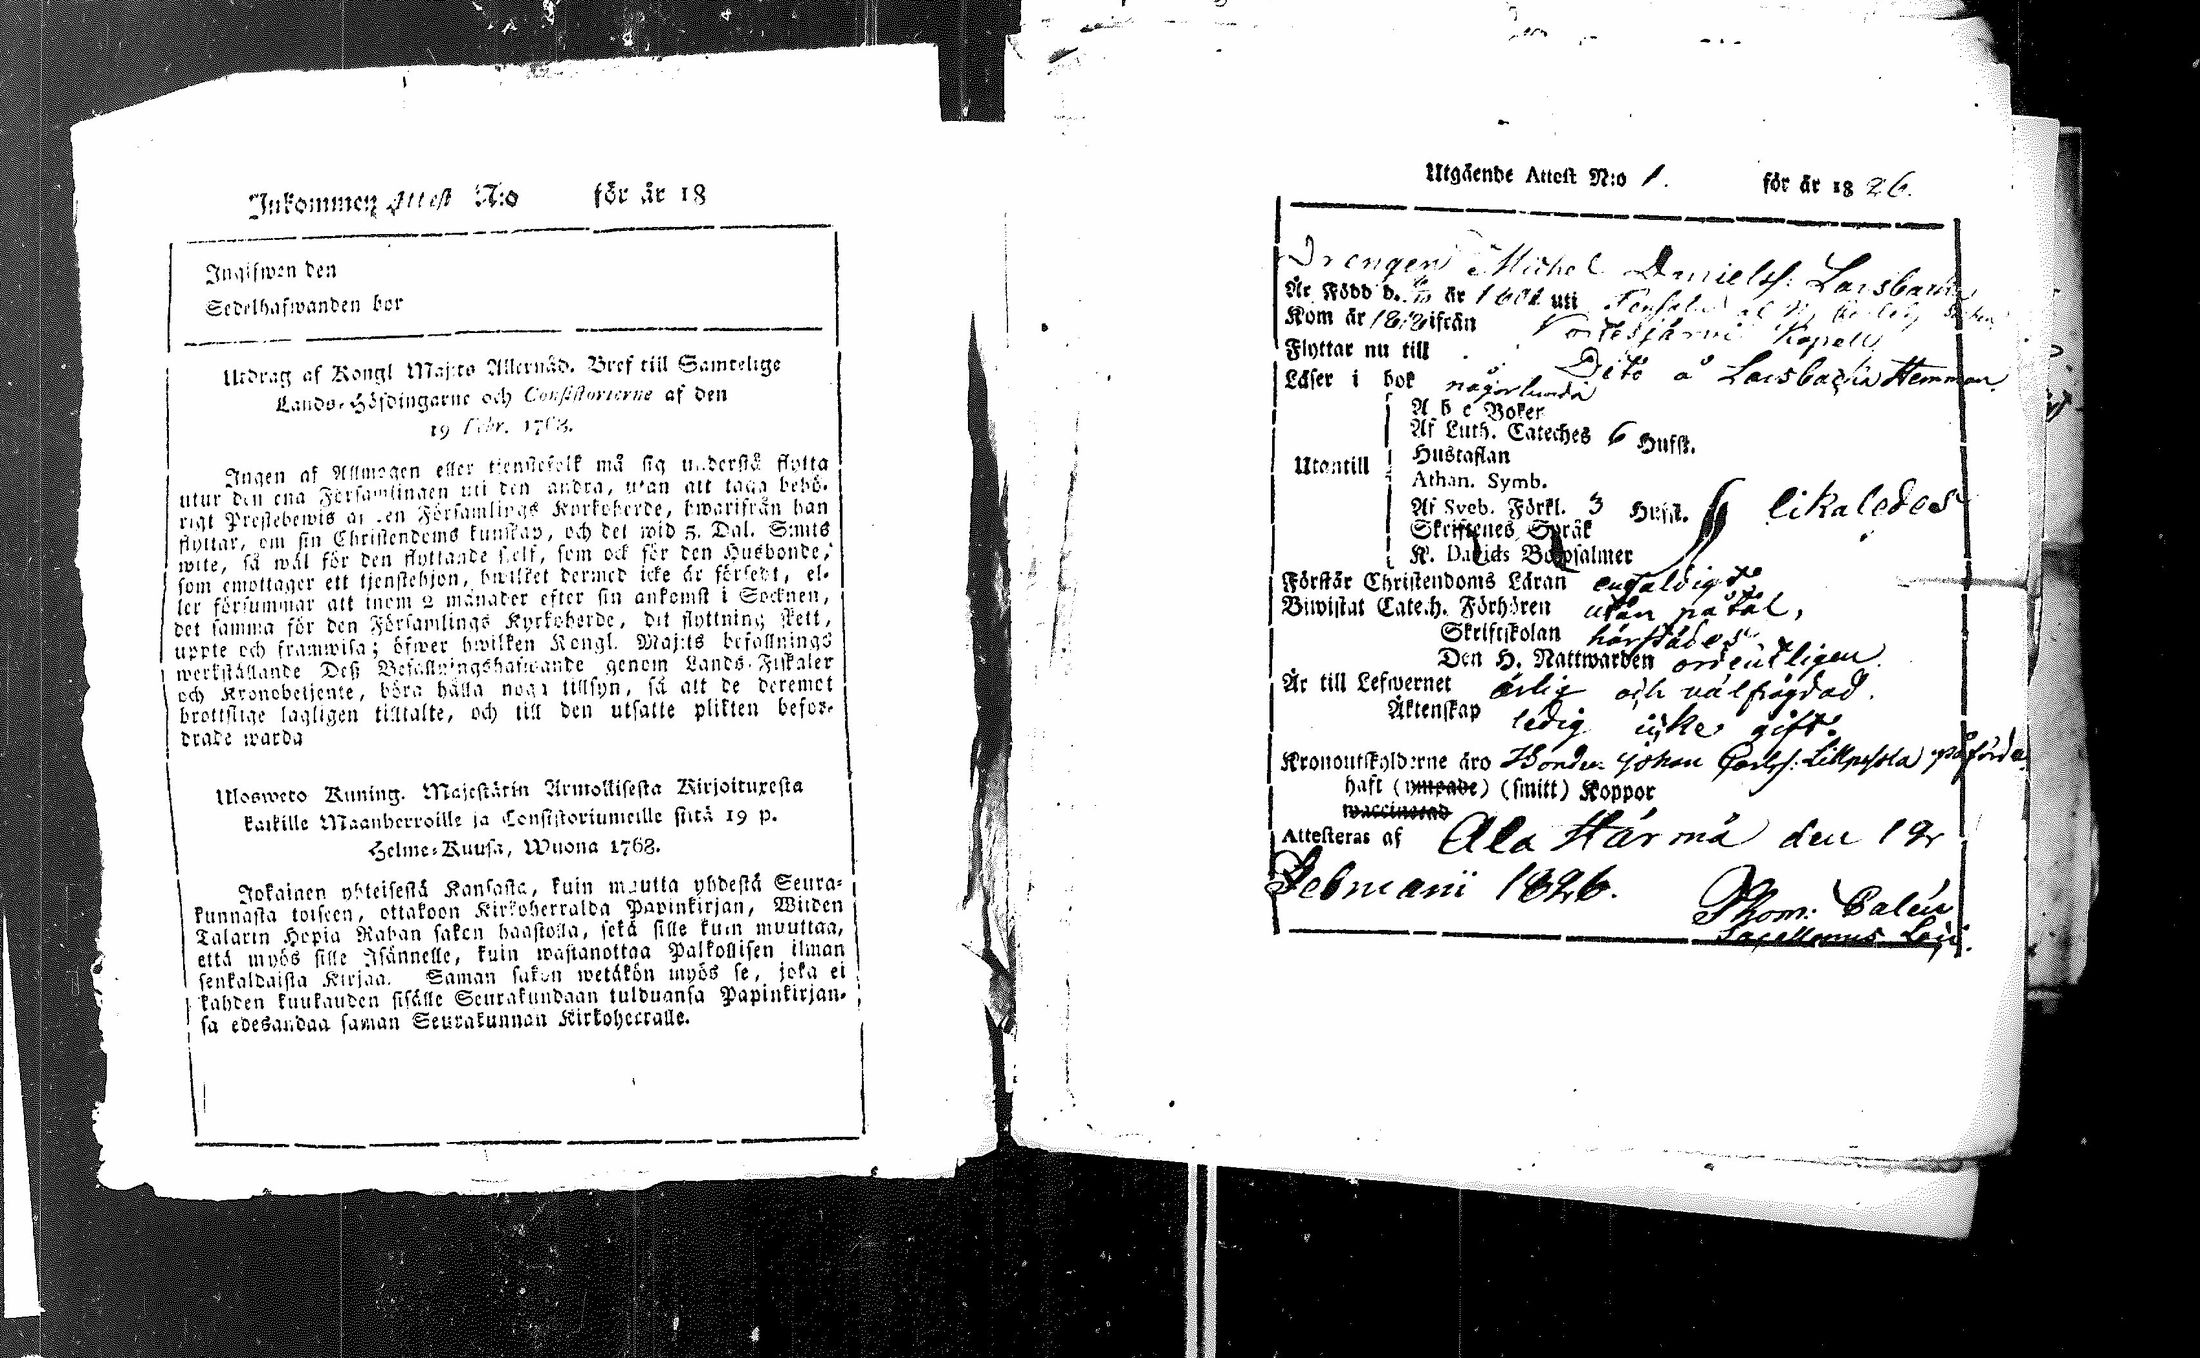 Inkommen Attest N:o för år 18
Ingifwen den
Sedelhafwanden bor
Utdrag af Kongl Maj:ts Allernåd. Bref till Samtelige
Lands-Höfdingarne och Consistorierne af den
19 Febr. 1768.
Ingen af Allmogen eller tjenstefolk må sig understå flytta
utur den ena Församlingen uti den andra, utan att taga behö-
rigt Prestebewis af den Församlings Kyrkoherde, hwarifrån han
flyttar, om sin Christendoms kunskap, och det wid 5. Dal. S:mts
wite, så wäl för den flyttande sjelf, som ock för den Husbonde,
som emottager ett tjenstehjon, hwilket dermed icke är försedt, el-
ler försummar att inom 2 månader efter sin ankomst i Socknen,
det samma för den Församlings Kyrkoherde, dit flyttning skett,
uppte och framwisa; öfwer hwilken Kongl. Maj:ts befallnings
werkställande Deß Befallningshafwande genom Lands-Fiskaler
och Kronobetjente, böra hålla noga tillsyn, så att de deremot
brottslige lagligen tilltalte, och till den utsatte plikten befor-
drade warda
Ulosweto Kuning. Majestätin Armollisesta Kirjoituxesta
kaikille Maanherroille ja Consistoriumeille siitä 19 p.
Helme-Kuusa, Wuona 1768.
Jokainen yhteisestä Kansasta, kuin muutta yhdestä Seura-
kunnasta toiseen, ottakoon Kirkoherralda Papinkirjan, Wiiden
Talarin Hopia Rahan sakon haastolla, sekä sille kuin muuttaa,
että myös sille Isännelle, kuin wastanottaa Palkollisen ilman
senkaldaista Kirjaa. Saman sakon wetäkön myös se, joka ei
kahden kuukauden sisälle Seurakundaan tulduansa Papinkirjan-
sa edesandaa saman Seurakunnan Kirkoherralle.
Utgående Attest N:o 1. för år 1826.
Drengen Michel Danielss: Larsbacka
Är Född d. år uti
Kom år 1818 ifrån Kortesjärvi Kapell
Flyttar nu till Dito å Larsbacka Hemman.
Läser i bok någorlunda
A b c Boken
Af Luth. Cateches 6 Hufst.
Hustaflan
Utantill
Athan. Symb.
Af Sveb. Förkl. 3 Hufst. likaledes
Skriftenes Språk
K. Davids Botpsalmer
Förstår Christendoms Läran enfaldigt
Biwistat Catech. Förhören utan påtal,
Skriftskolan härstädes
Den H. Nattwarden ordentligen.
Är till Lefwernet ärlig och välfrägdad.
Äktenskap ledig icke gift.
Kronoutskylderne äro Bonden Johan påförde
haft (ympade) (smitt) Koppor
waccinerad
Attesteras af Ala Härmä den 12
Februarii 1826.
Thom: Calén
Sacellanus Loci.